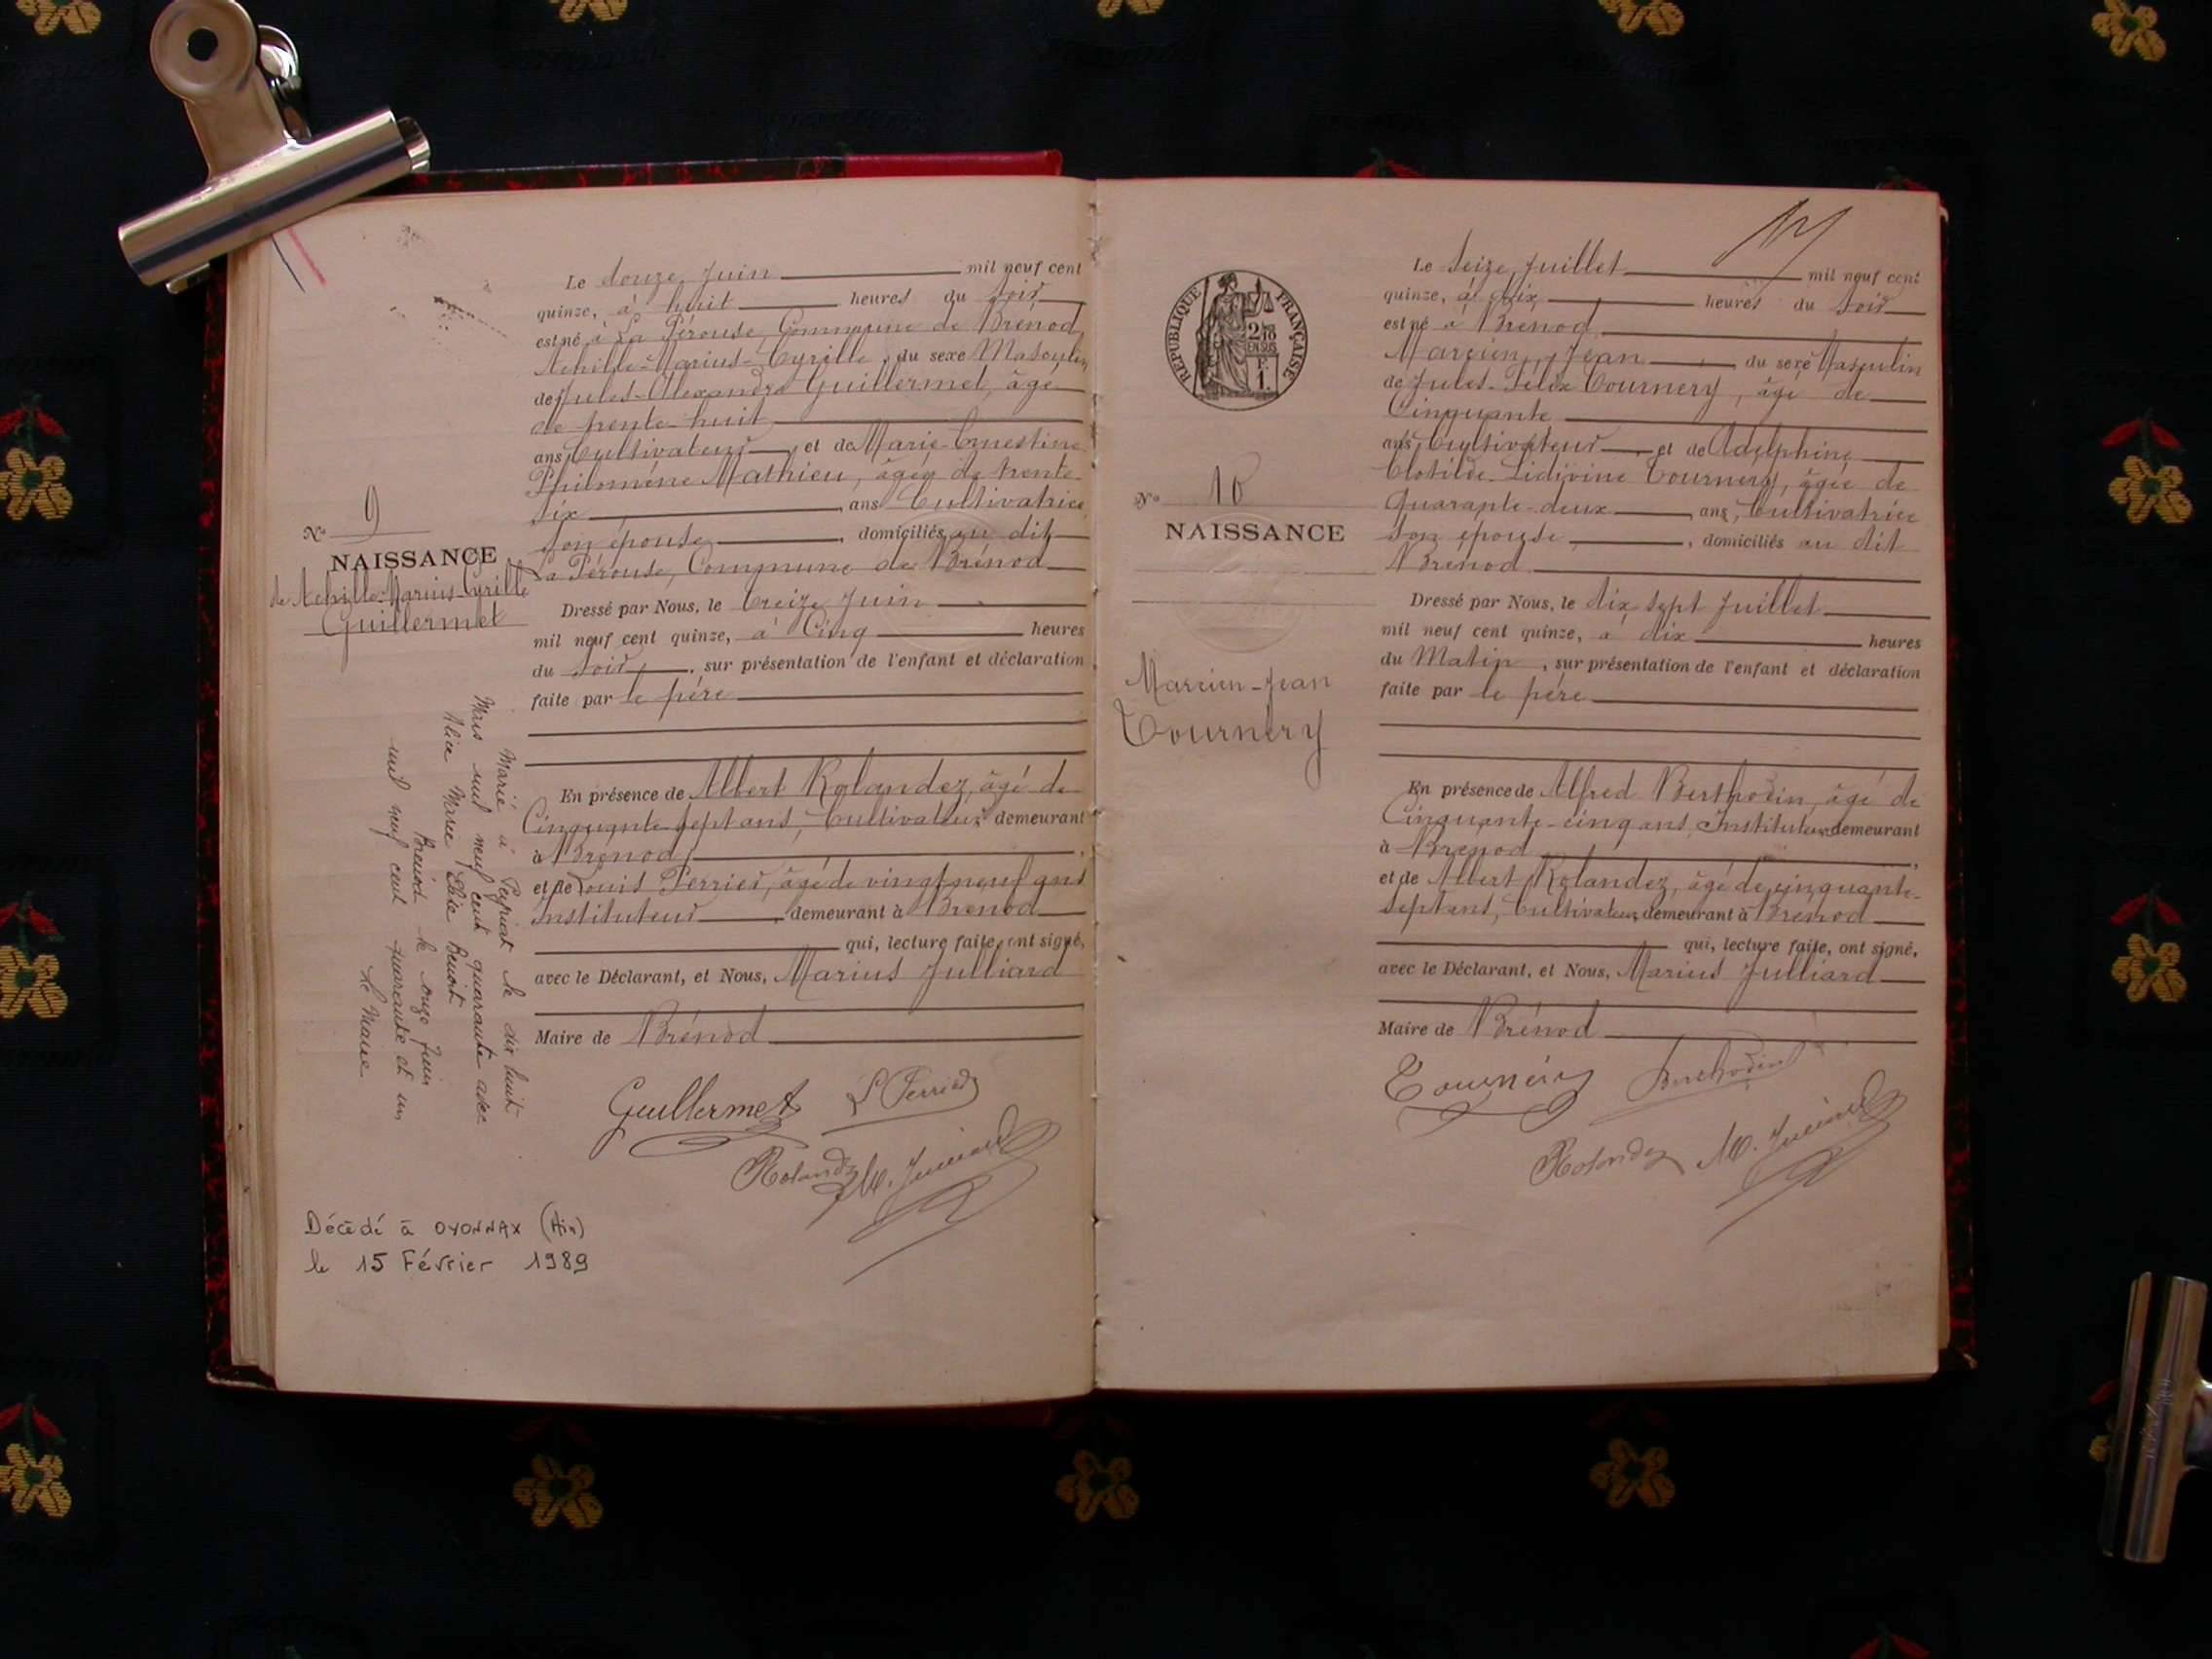 Le douze Juin mil neuf cent
quinze, à huit heures du soir
est né à La Pérouse, Commune de Brénod
Achille-Marius-Cyrille, du sexe Masculin
de Jules-Alexandre Guillermet, âgé
de trente-huit
ans, Cultivateur, et de Marie-Ernestine
Philomène Mathieu, âgée de trente
six, ans Cultivatrice
son épouse, domiciliés au dit
La Pérouse, Commune de Brénod
Dressé par Nous, le treize Juin
mil neuf cent quinze, à Cinq heures
du soir, sur présentation de l'enfant et déclaration
faite par le père
En présence de Albert Rolandez, âgé de
Cinquante-sept ans, Cultivateur demeurant
à Brénod,
et de Louis Perrier, âgé de vingt neuf ans
Instituteur, demeurant à Brénod
qui, lecture faite, ont signé,
avec le Déclarant, et Nous, Marius Julliard
Maire de Brénod
Guillermet L Perrier
Rolandez M. Julliard
No 9
NAISSANCE
de Achille-Marius-Cyrille
Guillermet
Marié à Peyriat le dix huit
Mars mil neuf cent quarante avec
Alice Marie Benoit
Brénod le onze Juin
mil neuf cent quarante et un
Le Maire
Décédé à OYONNAX (Ain)
le 15 Février 1989
RÉPUBLIQUE FRANÇAISE
2/10
EN SUS
F.
1.
No 10
NAISSANCE
Marcien-Jean
Tournery
Le Seize Juillet mil neuf cent
quinze, à dix heures du soir
est né à Brénod
Marcien, Jean, du sexe Masculin
de Jules-Félix Tournery, âgé de
Cinquante
ans, Cultivateur, et de Adelphine
Clotilde-Lidivine Tournery, âgée de
Quarante-deux, ans, Cultivatrice
son épouse, domiciliés au dit
Brénod
Dressé par Nous, le dix sept Juillet
mil neuf cent quinze, à dix heures
du Matin, sur présentation de l'enfant et déclaration
faite par le père
En présence de Alfred Berthodin, âgé de
Cinquante-cinq ans, Instituteur demeurant
à Brénod,
et de Albert Rolandez, âgé de cinquante-
sept ans, Cultivateur, demeurant à Brénod
qui, lecture faite, ont signé,
avec le Déclarant, et Nous, Marius Julliard
Maire de Brénod
Tournery Berthodin
Rolandez M. Julliard